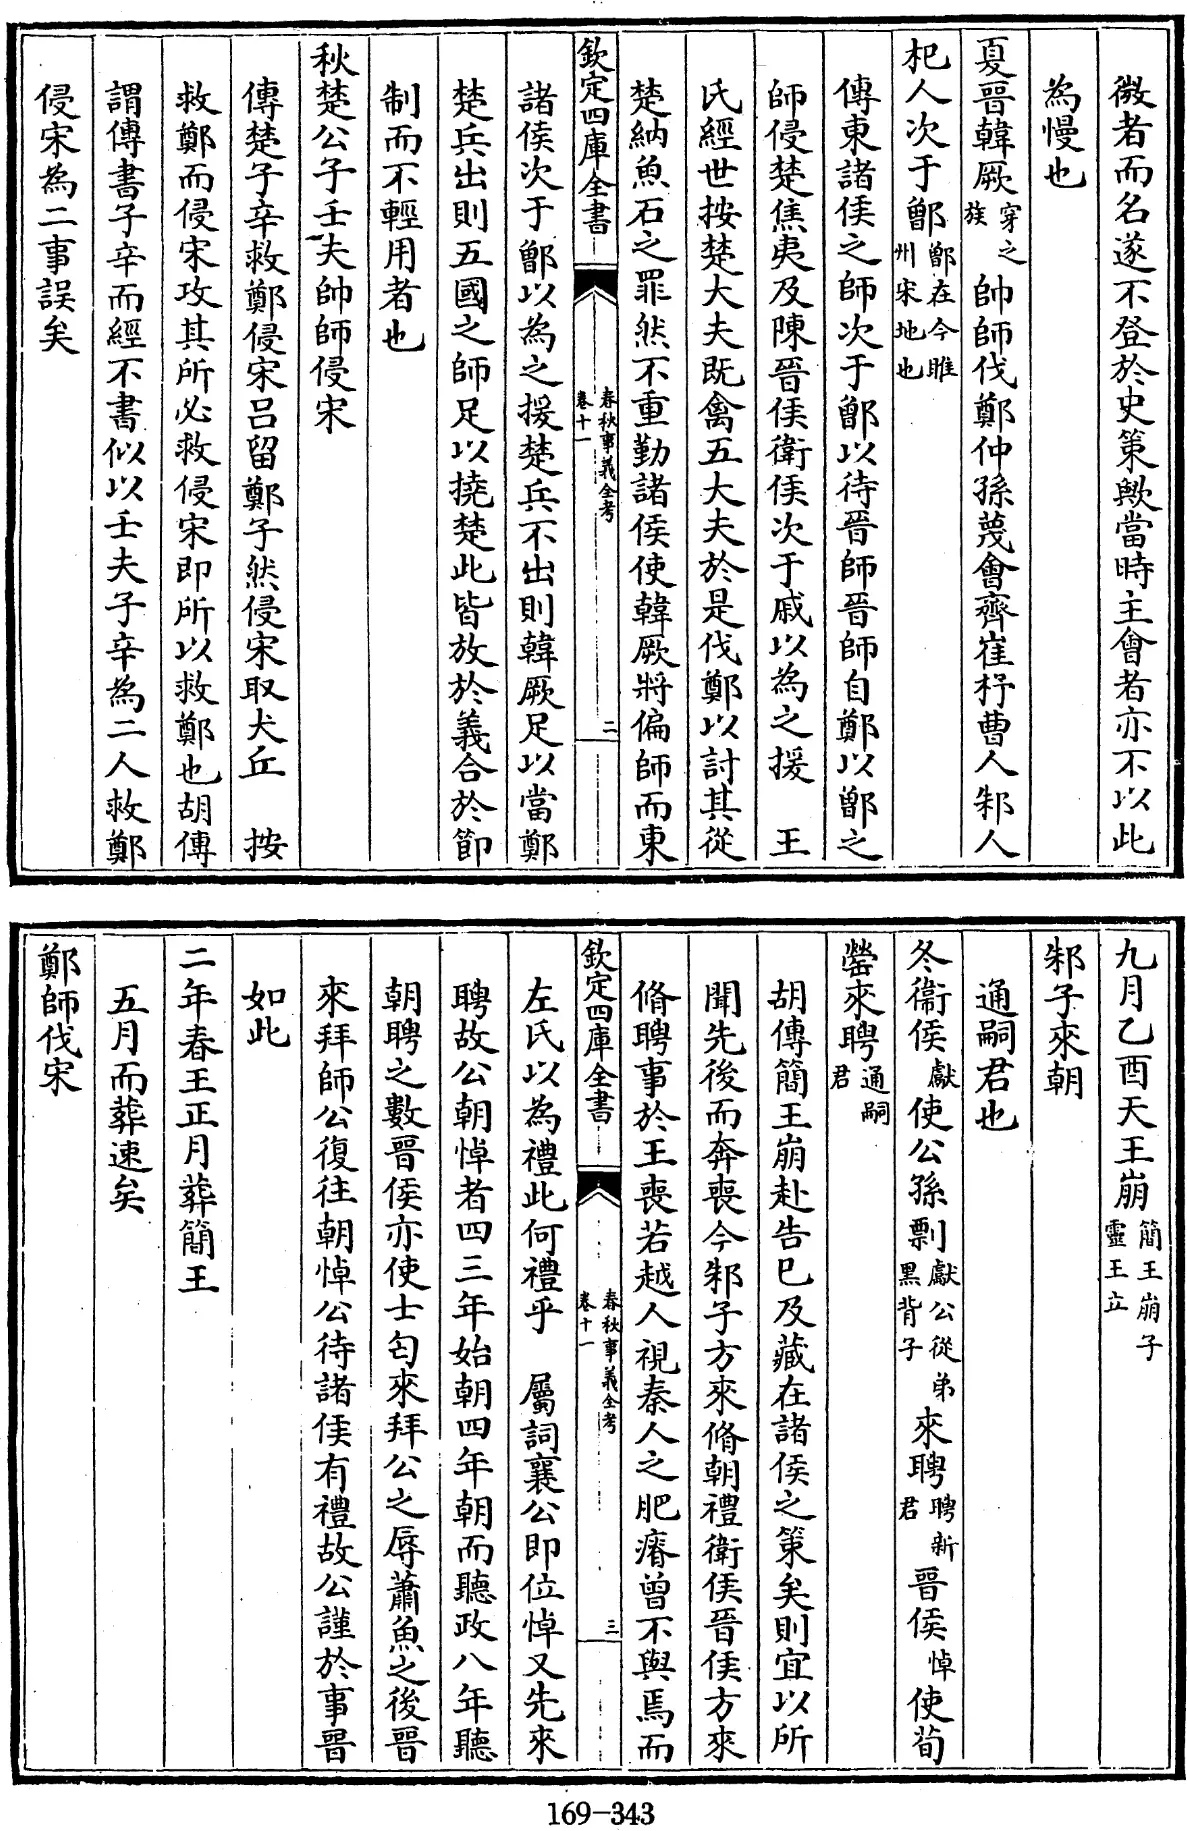 微者而名遂不登於史策歟當時主會者亦不以此
為慢也
夏晉韓厥穿之族帥師伐鄭仲孫蔑會齊崔杼曹人邾人
杞人次于鄫鄫在今睢州宋地也
傳東諸侯之師次于鄫以待晉師晉師自鄭以鄫之
師侵楚焦夷及陳晉侯衛侯次于戚以為之援　王
氏經世按楚大夫既禽五大夫於是伐鄭以討其從
楚納魚石之罪然不重勤諸侯使韓厥將偏師而東
欽定四庫全書
春秋事義全考
卷十一
二
諸侯次于鄫以為之援楚兵不出則韓厥足以當鄭
楚兵出則五國之師足以撓楚此皆放於義合於節
制而不輕用者也
秋楚公子壬夫帥師侵宋
傳楚子辛救鄭侵宋呂留鄭子然侵宋取犬丘　按
救鄭而侵宋攻其所必救侵宋即所以救鄭也胡傳
謂傳書子辛而經不書似以壬夫子辛為二人救鄭
侵宋為二事誤矣
九月乙酉天王崩簡王崩子靈王立
邾子來朝
通嗣君也
冬衞侯獻使公孫剽獻公從弟黑背子來聘聘新君晉侯悼使荀
罃來聘通嗣君
胡傳簡王崩赴告已及藏在諸侯之策矣則宜以所
聞先後而奔喪今邾子方來脩朝禮衛侯晉侯方來
脩聘事於王喪若越人視秦人之肥瘠曾不與焉而
欽定四庫全書
春秋事義全考
卷十一
三
左氏以為禮此何禮乎　屬詞襄公即位悼又先來
聘故公朝悼者四三年始朝四年朝而聽政八年聽
朝聘之數晉侯亦使士匄來拜公之辱蕭魚之後晉
來拜師公復往朝悼公待諸侯有禮故公謹於事晉
如此
二年春王正月葬簡王
五月而葬速矣
鄭師伐宋
169-343